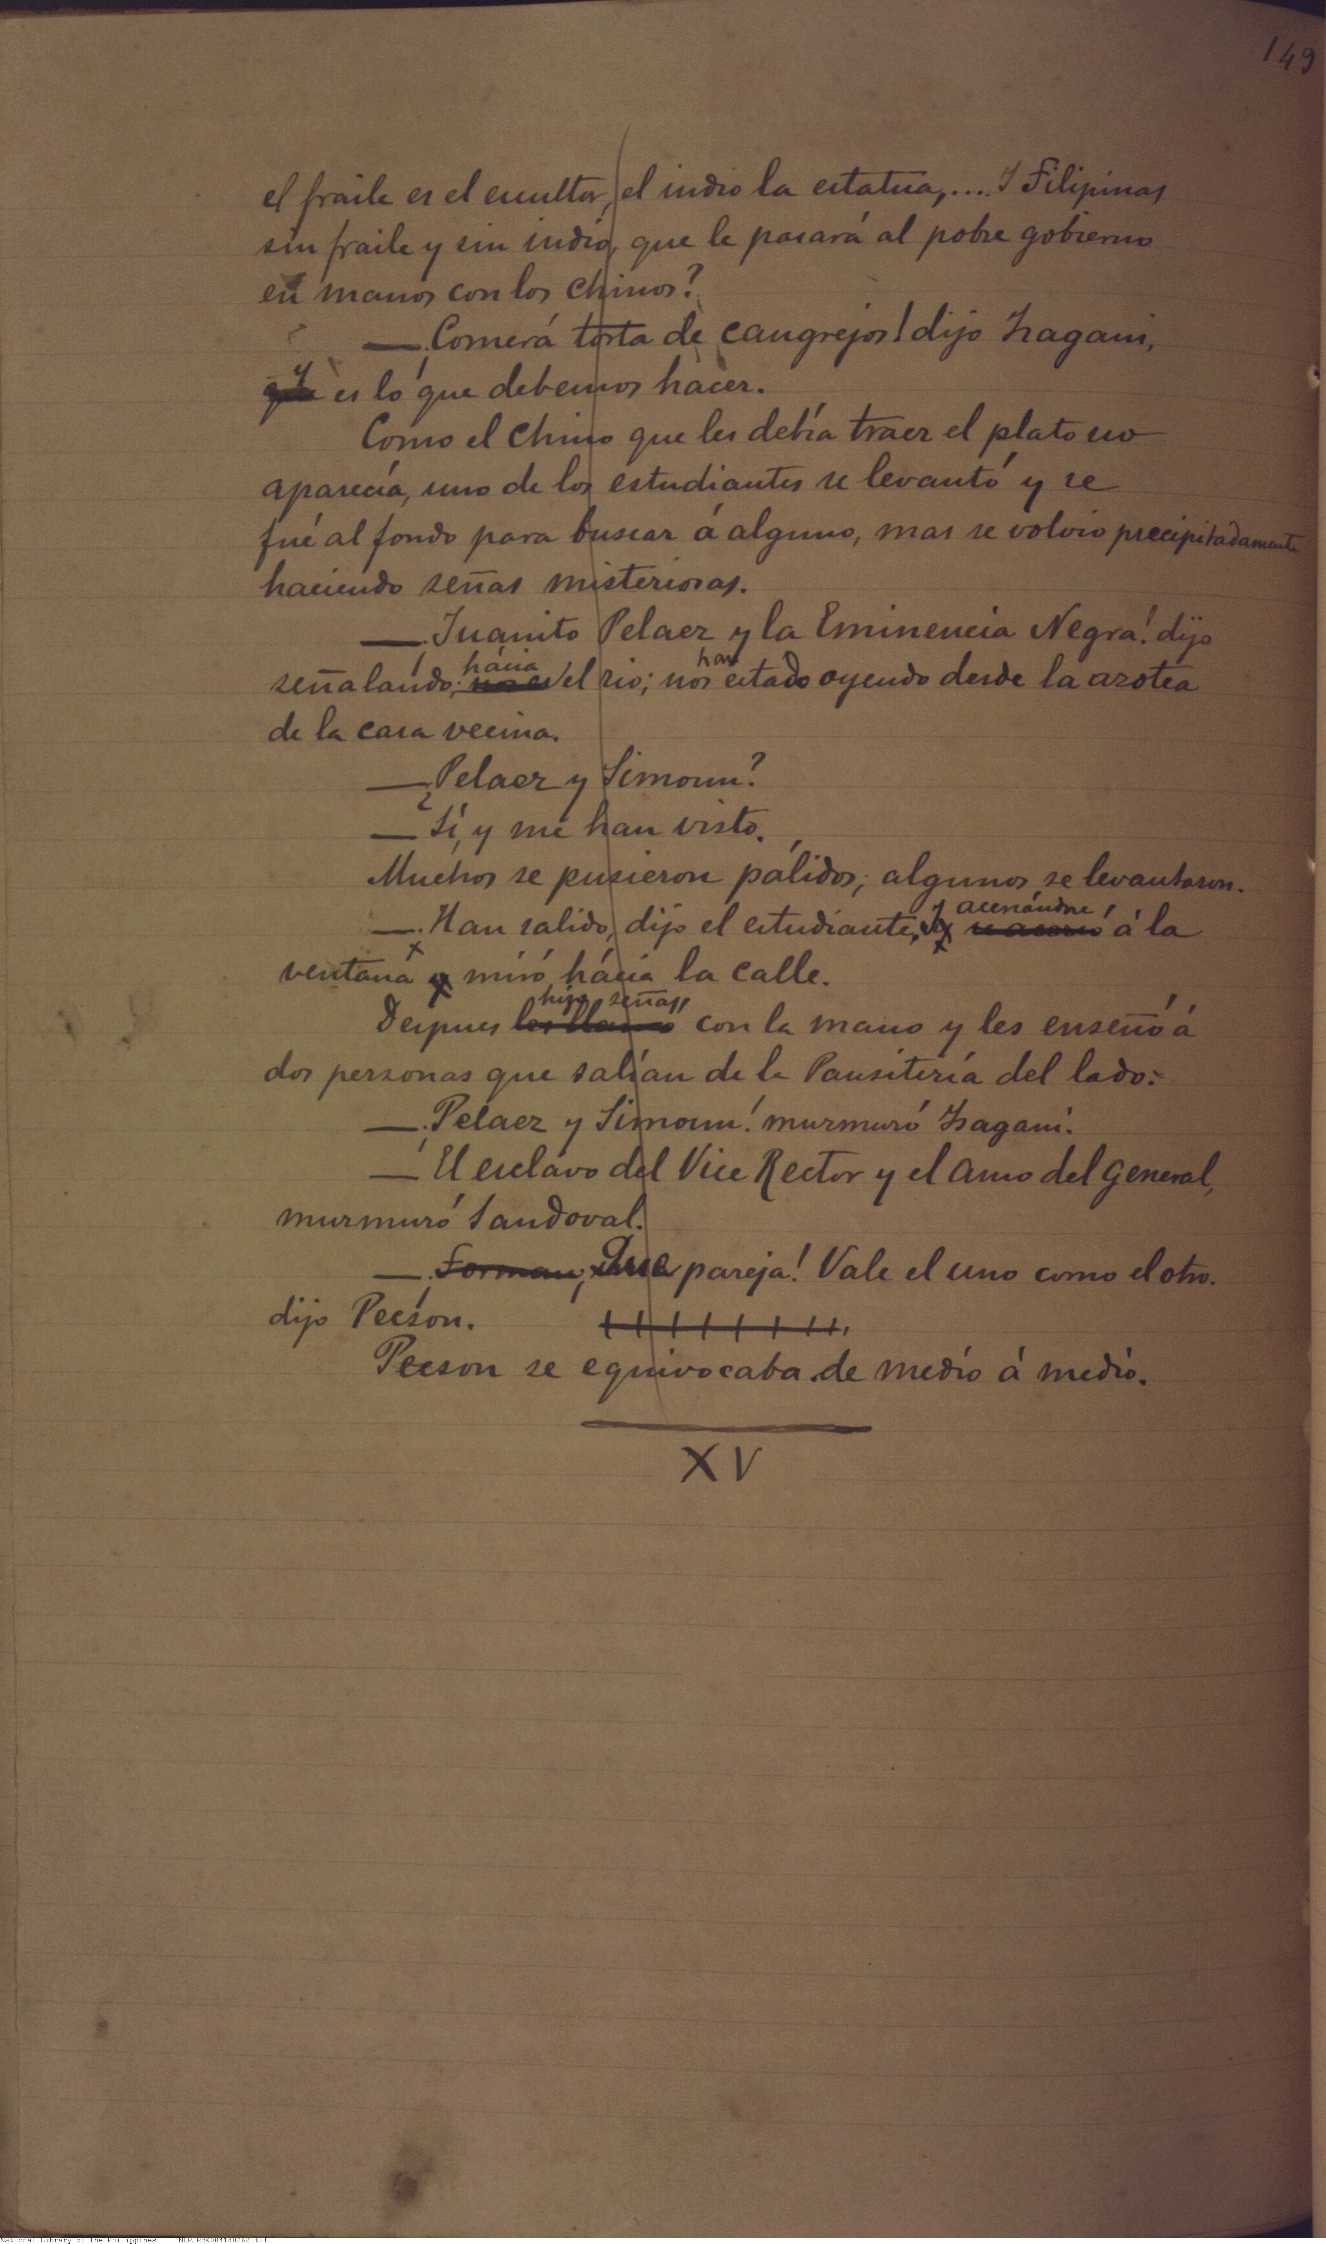 149
el fraile es el escultor, el indio la estatua,.... Y Filipinas
sin fraile y sin indio, que le pasará al pobre gobierno
en manos con los chinos?
—¡Comerá torta de cangrejos! dijo Isagani,
y es lo que debemos hacer.
Como el Chino que les debía traer el plato no
aparecía, uno de los estudiantes se levantó y se
fué al fondo para buscar á alguno, mas se volvio precipitadamente
haciendo señas misteriosas.
—¡Juanito Pelaez y la Eminencia Negra! dijo
señalando; hácia el rio; nos han estado oyendo desde la azotea
de la casa vecina.
—¿Pelaez y Simoun?
—Sí, y me han visto.
Muchos se pusieron pálidos; algunos se levantaron.
—Han salido, dijo el estudiante, y acercándose á la
ventana miró hácia la calle.
Despues les llamó hizo señas con la mano y les enseñó á
dos personas que salían de la Pansitería del lado:
—¡Pelaez y Simoun! murmuró Isagani.
—El esclavo del Vice Rector y el Amo del General,
murmuró Sandoval.
—¡Forman, Que pareja! Vale el uno como el otro.
dijo Pecson.
Pecson se equivocaba de medio á medio.
XV